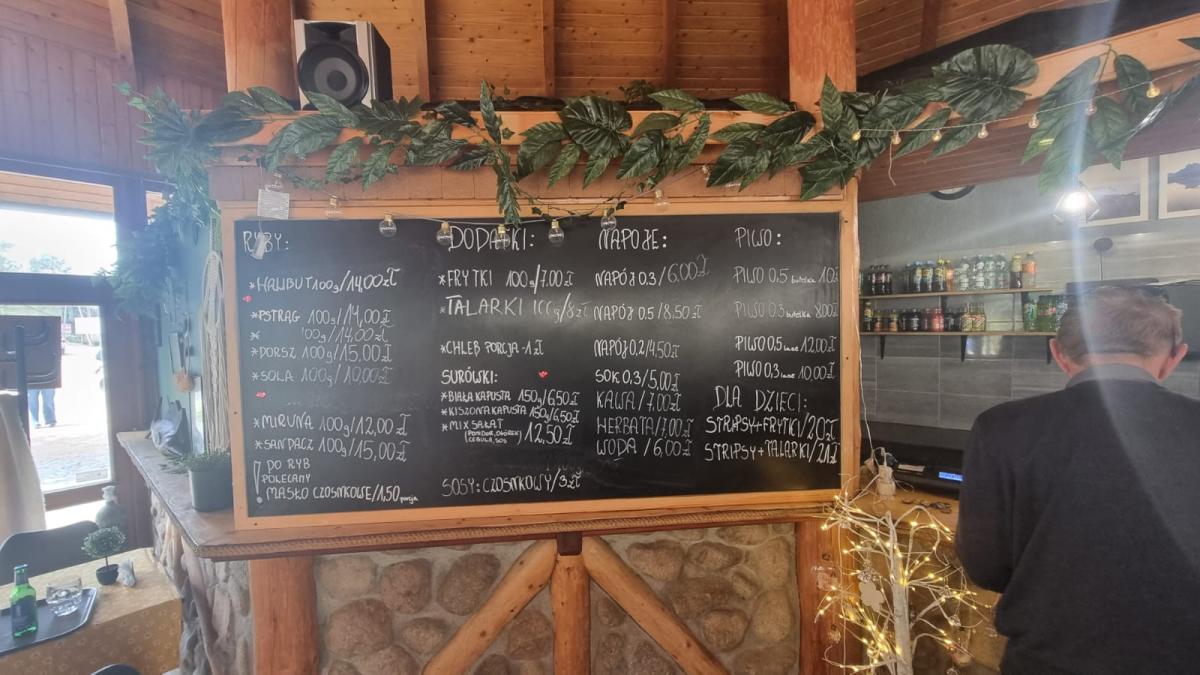 RYBY:
*HALIBUT 100g/14,00zł
*PSTRĄG 100g/14,00
* 100g/14,00zł
*DORSZ 100g/15,00zł
*SOLA 100g/10,00zł
*MIRUNA 100g/12,00 zł
*SANDACZ 100g/15,00zł
! DO RYB
POLECAMY
MASŁO CZOSNKOWE/1,50 porcja
DODATKI:
*FRYTKI 100g/7.00zł
*TALARKI 100g/8zł
*CHLEB PORCJA-1zł
SURÓWKI:
*BIAŁA KAPUSTA 150g/6,50zł
*KISZONA KAPUSTA 150g/6,50zł
*MIX SAŁAT 12,50zł
(POMIDOR, OGÓREK,
CEBULA, SOS)
SOSY: CZOSNKOWY/3zł
NAPOJE:
NAPÓJ 0.3/6,00zł
NAPÓJ 0.5/8,50zł
NAPÓJ 0.2/4,50zł
SOK 0,3/5,00zł
KAWA/7.00zł
HERBATA/7,00zł
WODA/6,00zł
PIWO:
PIWO 0.5 butelka
PIWO 0.3 butelka 8.00zł
PIWO 0.5 lane 12.00zł
PIWO 0,3 lane 10,00zł
DLA DZIECI:
STRIPSY+FRYTKI/20zł
STRIPSY+TALARKI/21zł